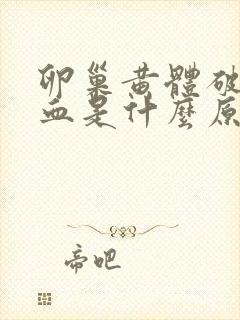 卵巢黃體破
血是什麼原
帝吧